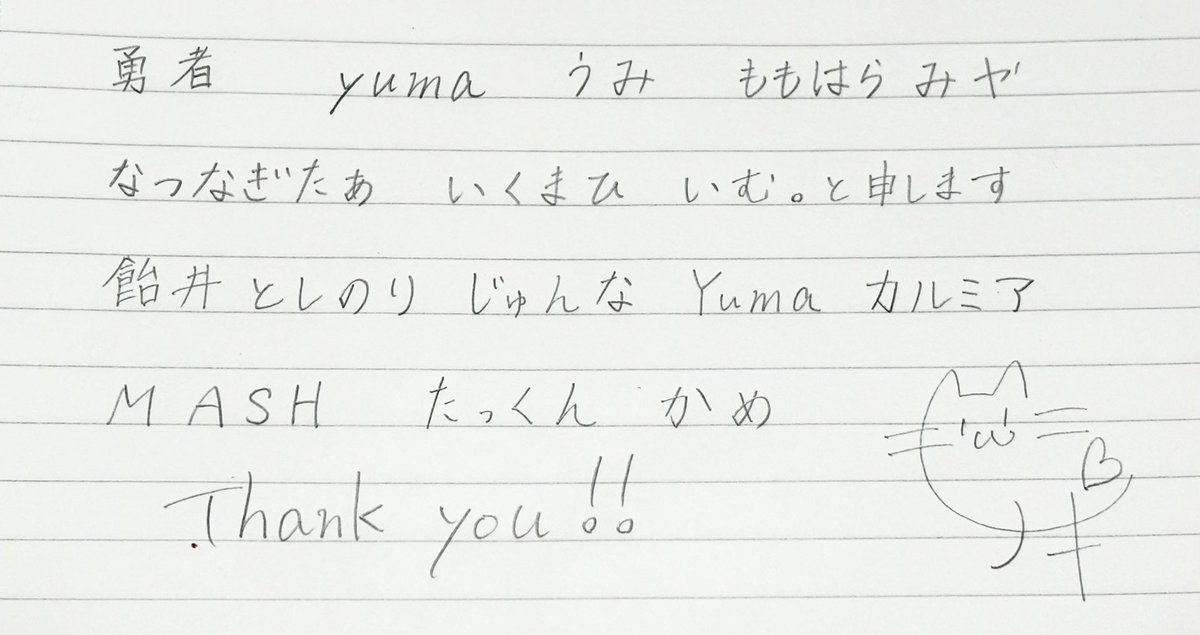 勇者 yuma うみ ももはらみヤ
なつなぎたぁ いくまひ いむ。と申します
飴井としのり じゅんな Yuma カルミア
MASH たっくん かめ
Thank you!!